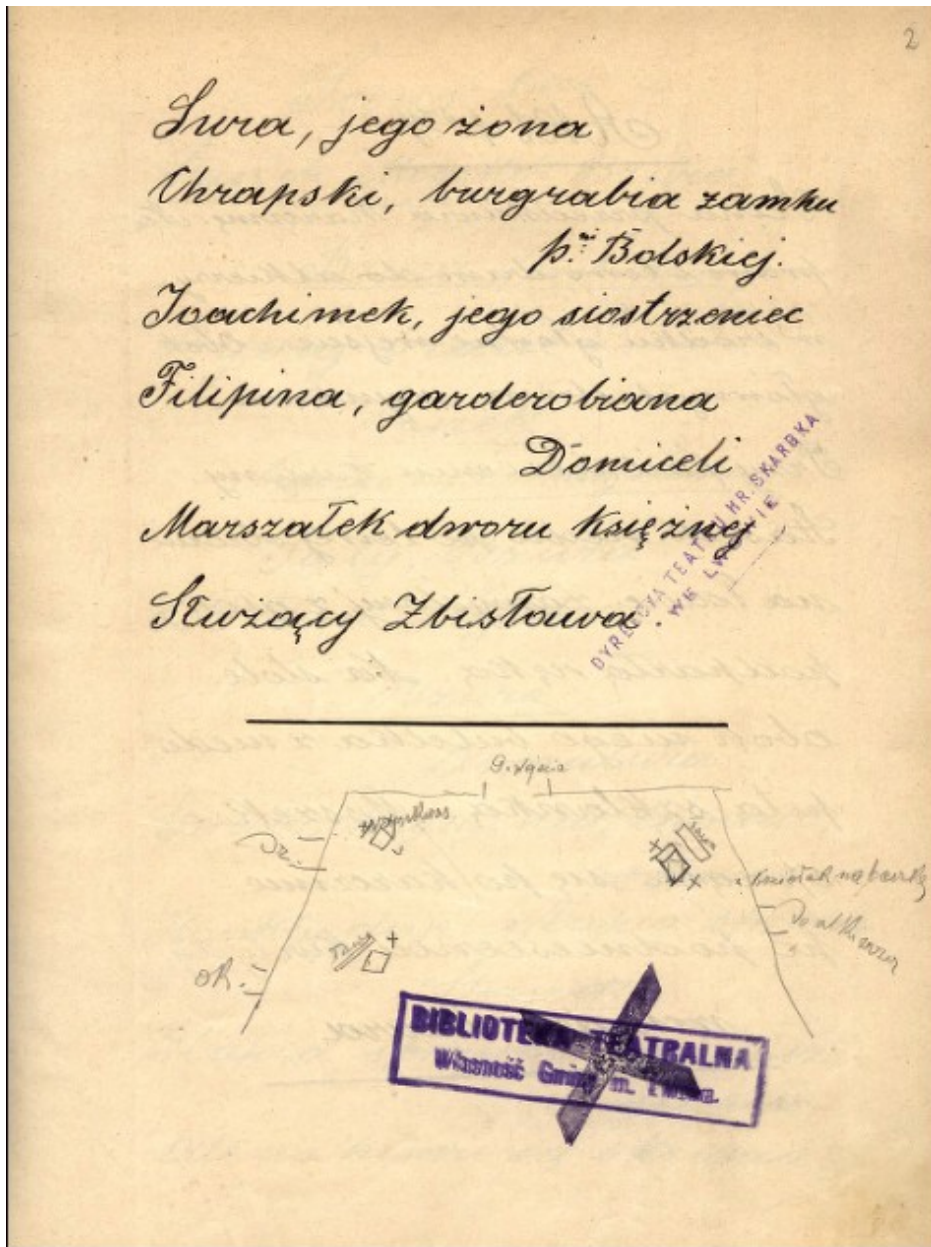 2
Sura, jego żona
Chrapski, burgrabia zamku
p.ni Bolskiej.
Joachimek, jego siostrzeniec
Filipina, garderobiana
Domiceli
Marszałek dworu Księżnej
Służący Zbisława.
DYREKCYA TEATRU HR. SKARBKA
WE LWOWIE
Dz.
ok.
BIBLIOTEKA TEATRALNA
Własność Gminy m. Lwowa.